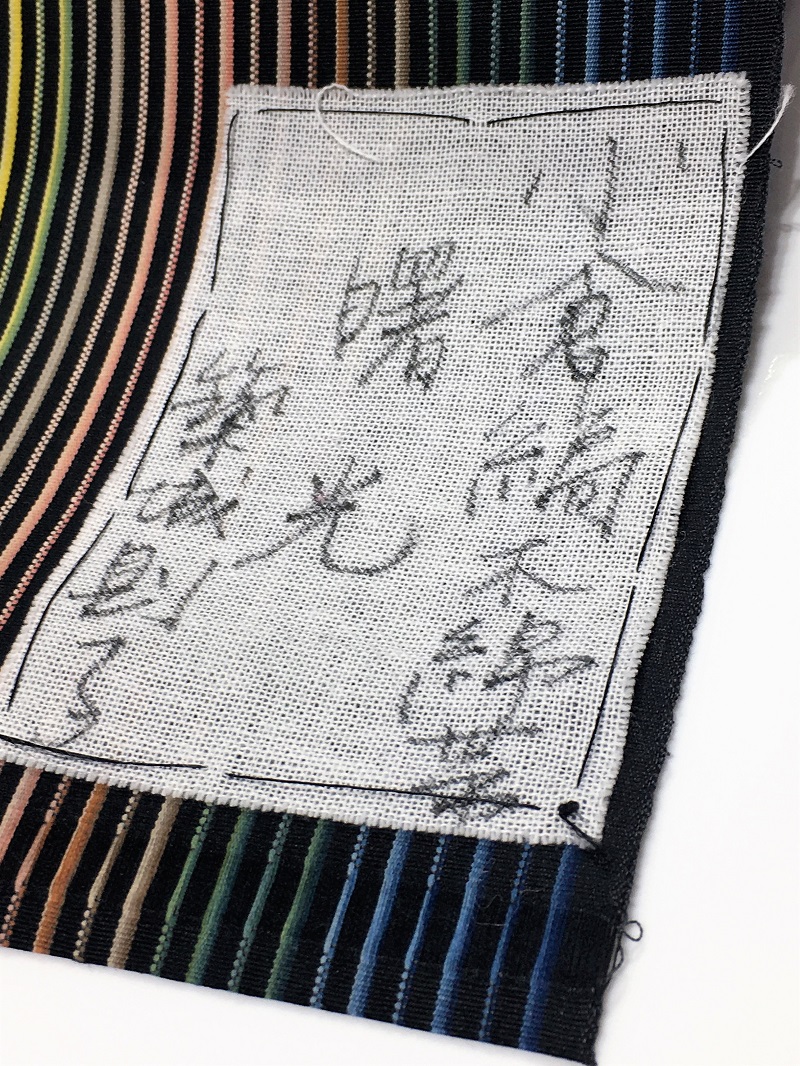 小倉縞木綿帯
曙光
築城則子